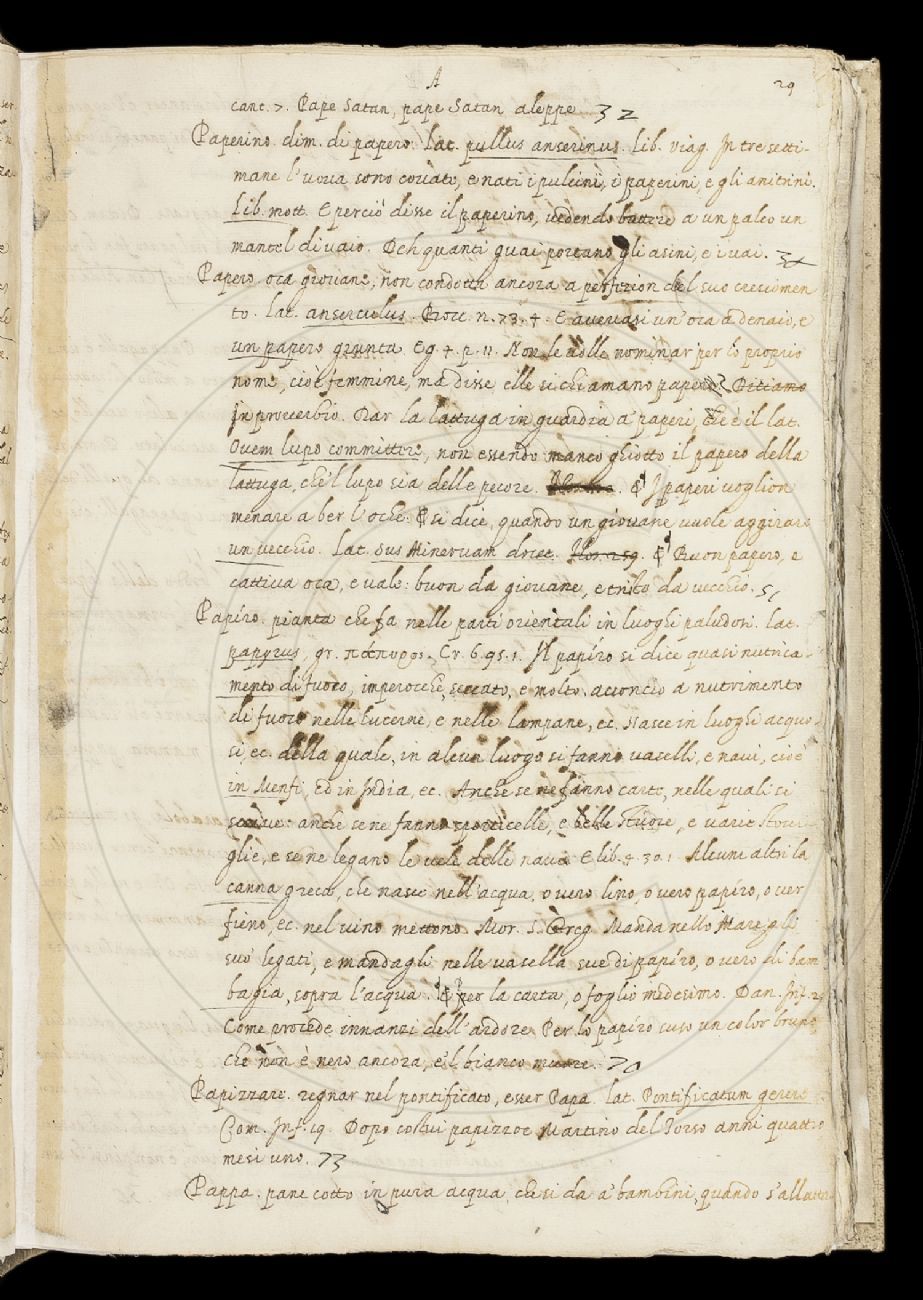 A 29
cant. 7. Pape Satan, pape Satan aleppe 32
Paperino. dim. di papero. lat. pullus anserinus. Lib. viag. In tre setti-
mane l'uova sono covate, e nati i pulcini, i paperini, e gli anitrini.
Lib. mott. E perciò disse il paperino, vedendo battere a un paleo un
mantel di vaio. Deh quanti guai portano gli asini, e i vai.
Papero. oca giovane, non condotta ancora a perfezion del suo crescimen
to. lat. anserculus. Bocc. n. 73. 4. E avevasi un'oca a denaio, e
un papero giunta E g. 4. p. 11. Non le volle nominar per lo proprio
nome, cioè femmine, ma disse elle si chiamano papere Diciamo
in proverbio. Dar la lattuga in guardia a' paperi, che è il lat.
Ovem lupo committere, non essendo manco ghiotto il papero della
lattuga, che'l lupo sia delle pecore. E I paperi voglion
menare a ber l'oche: E si dice, quando un giovane vuole aggirare
un vecchio. Lat. Sus Minervam docet. Flos. 259. E Buon papero, e
cattiva oca, e vale: buon da giovane, e tristo da vecchio. 51
Papíro. pianta che fa nelle parti orientali in luoghi paludosi. lat.
papyrus, gr. πάπυρος. Cr. 6. 95. 1. Il papíro si dice quasi nutrica-
mento di fuoco, imperocchè, seccato, e molto acconcio a nutrimento
di fuoco nelle lucerne, e nelle lampane, ec. Nasce in luoghi acquo-
si, ec. della quale, in alcun luogo si fanno vaselli, e navi, cioè
in Menfi, ed in India, ec. Anche se ne fanno carte, nelle quali si
scrive: anche se ne fanno sporticelle, e belle stuore, e varie stovi
glie, e se ne legano le vele delle navi E lib. 4. 30. 1. Alcuni altri la
canna greca, che nasce nell'acqua, o vero lino, o vero papíro, o ver
fieno, ec. nel vino mettono. Mor. S. Greg. Manda nello Mare, alli
suo' legati, e mandagli nelle vasella sue di papíro, o vero di bam
bagia, sopra l'acqua. E per la carta, o foglio medesimo. Dan. Inf. 25
Come procede innanzi dell'ardore Per lo papíro suso un color bruno
che non è nero ancora, e'l bianco muore. 70
Papizzare. regnar nel pontificato, esser Papa. lat. Pontificatum gerere
Com. Inf. 19. Dopo costui papizzoe Martino del Torso anni quattro
mesi uno. 73
Pappa. pane cotto in pura acqua, che si da a' bambini, quando s'allatta